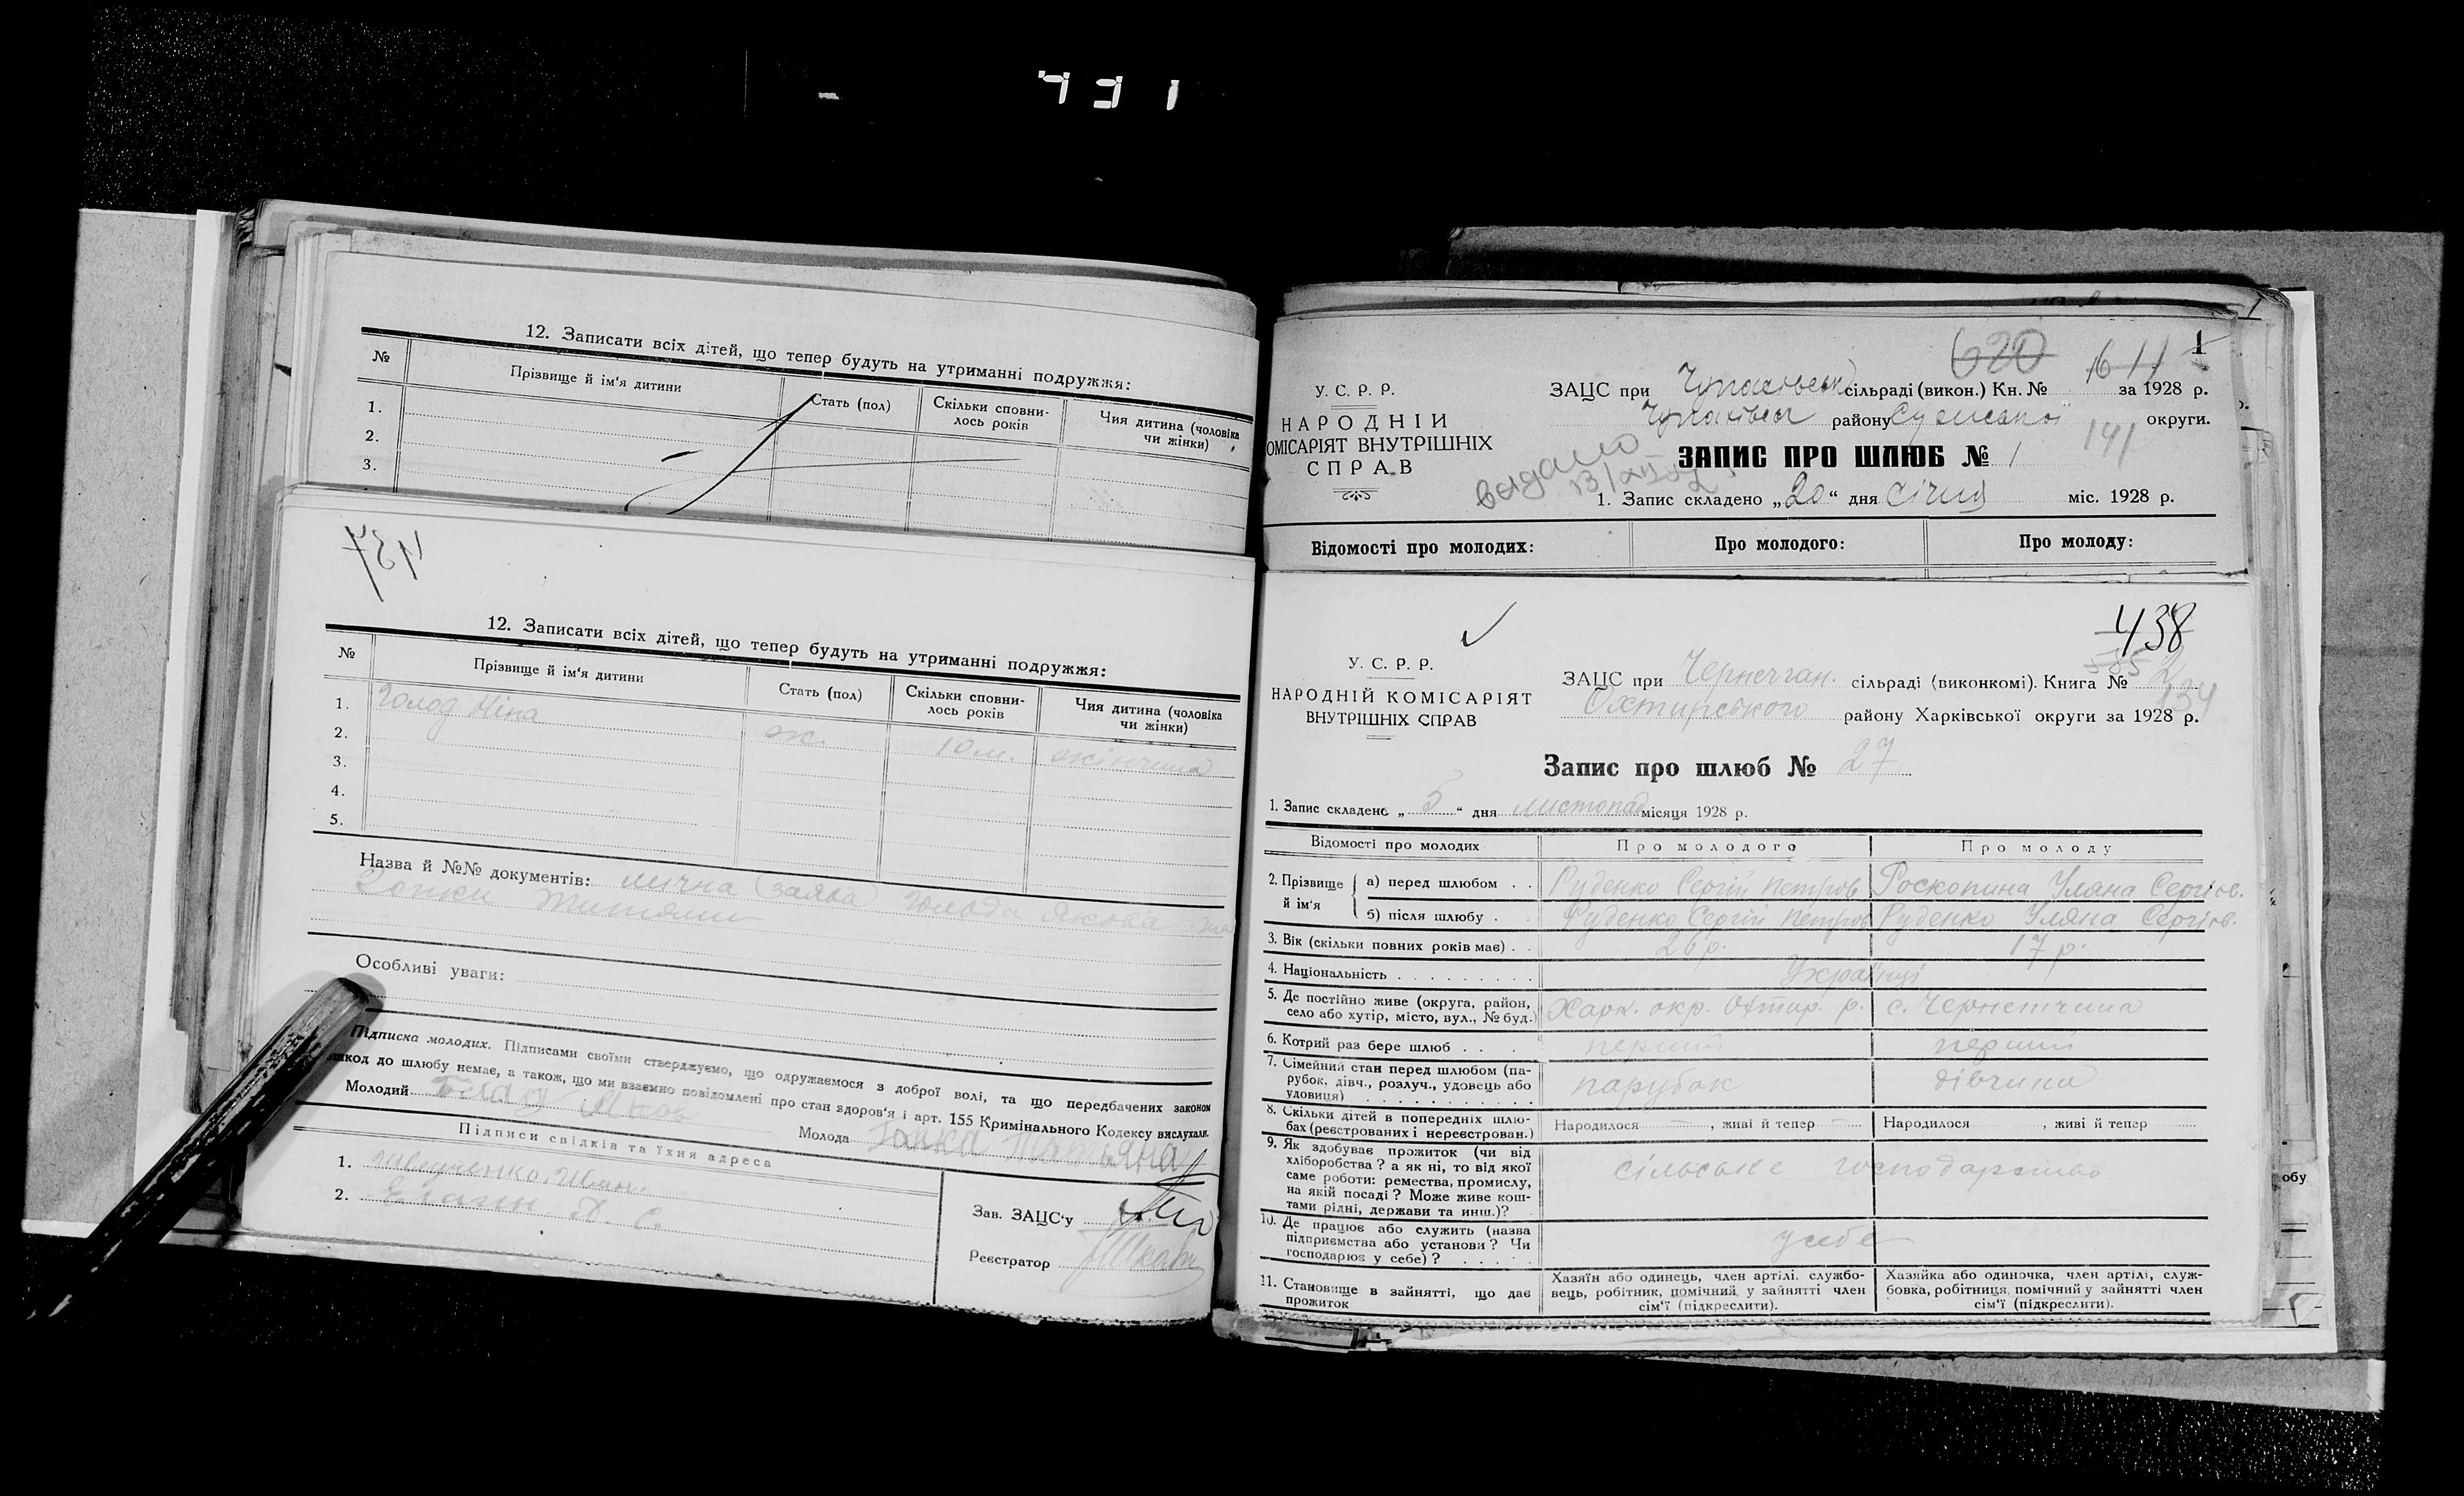 431
12. Записати всіх дітей, що тепер будуть на утриманні подружжя:
№ Прізвище й ім‘я дитини Стать (пол) Скільки сповнилось років Чия дитина (чоловіка чи жінки)
1.
2.
3.
437
12. Записати всіх дітей, що тепер будуть на утриманні подружжя:
№ Прізвище й ім‘я дитини Стать (пол) Скільки сповни-
лось років Чия дитина (чоловіка
чи жінки)
1. Голод Ніна ж. 10 м. жінчина
2.
3.
4.
5.
Назва й №№ документів: лична заява Голода Якова
Особливі уваги:
Підписка молодих. Підписами своїми стверджуємо, що одружаємося з доброї волі, та що передбачених законом
шкод до шлюбу немає, а також, що ми взаємно повідомлені про стан здоров‘я і арт. 155 Кримінального Кодексу вислухали.
Молодий
Молода Татьяна
Підписи свідків та їхня адреса
1.
2.
Зав. ЗАЦС‘у
Реєстратор
620 611 1
У. С. Р. Р.
НАРОДНІЙ
ОМІСАРІЯТ ВНУТРІШНІХ
СПРАВ
ЗАЦС при Чупахівськ сільраді (викон.) Кн. № за 1928 р.
Чупахівськ району Сумської округи.
141
ЗАПИС ПРО ШЛЮБ № 1
видано
1. Запис складено „20“ дня січня міс. 1928 р.
Відомості про молодих: Про молодого: Про молоду:
438
У. С. Р. Р.
НАРОДНІЙ КОМІСАРІЯТ
ВНУТРІШНІХ СПРАВ
ЗАЦС при Чернечан. сільраді (виконкомі). Книга № 2
134
Охтирського району Харківської округи за 1928 р.
Запис про шлюб № 27
1. Запис складено „5“ дня листопад місяця 1928 р.
Відомості про молодих Про молодого Про молоду
2. Прізвище й ім‘я а) перед шлюбом . . Руденко Сергій Петров. Роскопина Уляна Сергіов.
б) після шлюбу . Руденко Сергій Петров Руденко Уляна Сергіов.
3. Вік (скільки повних років має) . . 26 р. 17 р.
4. Національність . . . . . . . . . Українці
5. Де постійно живе (округа, район,
село або хутір, місто, вул., № буд.) Харк. окр. Охтир. р. с. Чернетчина
6. Котрий раз бере шлюб . . . . перший перший
7. Сімейний стан перед шлюбом (па-
рубок, дівч., розлуч., удовець або
удовиця) . . . . . . . . . . . парубок дівчина
8. Скільки дітей в попередніх шлю-
бах (реєстрованих і нереєстрован.) Народилося —, живі й тепер — Народилося , живі й тепер
9. Як здобуває прожиток (чи від
хліборобства? а як ні, то від якої
саме роботи: ремества, промислу,
на якій посаді? Може живе кош-
тами рідні, держави та инш.)? сільське господарство
10. Де працює або служить (назва
підприємства або установи? Чи
господарює у себе)? . . . . . у себе
11. Становище в зайнятті, що дає
прожиток
Хазяїн або одинець, член артілі, службо-
вець, робітник, помічний у зайнятті член
сім‘ї (підкреслити).
Хазяйка або одиночка, член артілі, служ-
бовка, робітниця, помічний у зайнятті член
сім‘ї (підкреслити).
обу